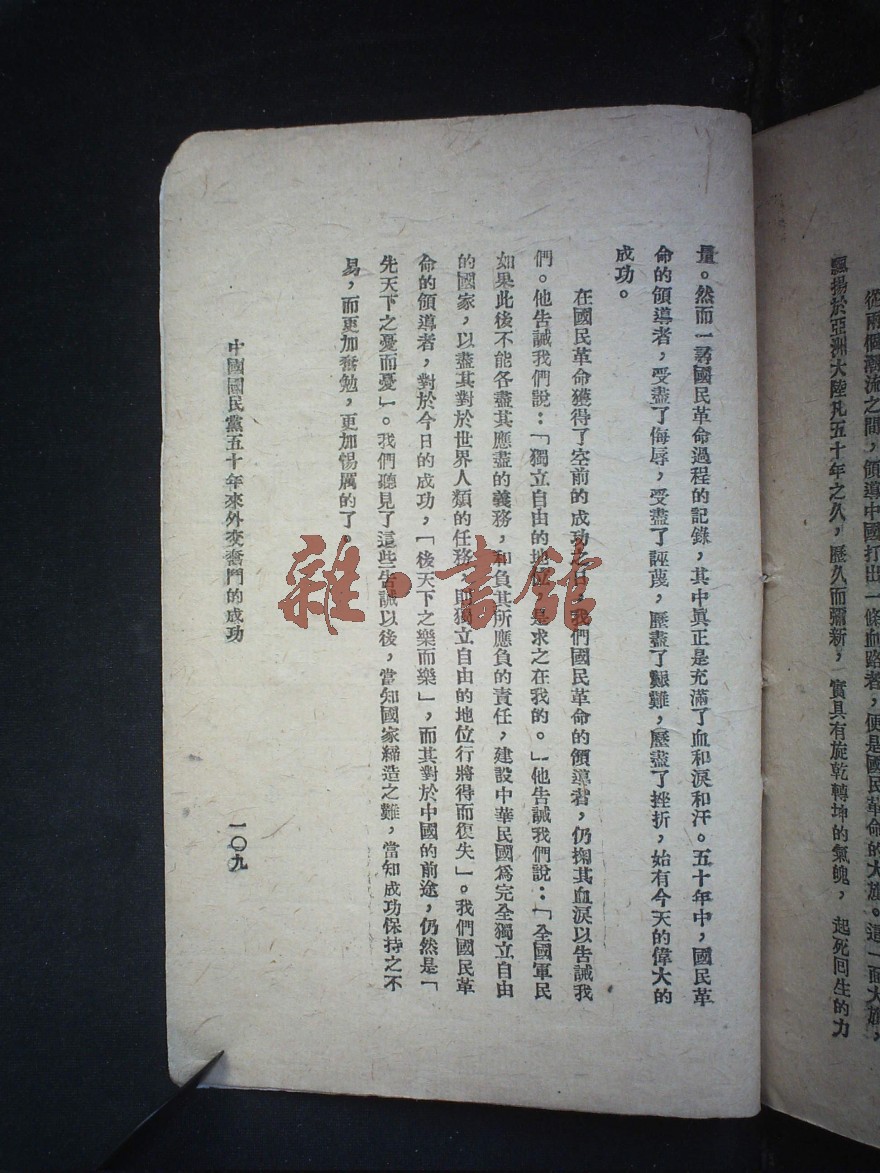 從兩個潮流之間，領導中國打出一條血路者，便是國民革命的大旗。這一面大旗，
飄揚於亞洲大陸凡五十年之久，歷久而彌新，實具有旋乾轉坤的氣魄，起死回生的力
量。然而一尋國民革命過程的記錄，其中眞正是充滿了血和淚和汗。五十年中，國民革
命的領導者，受盡了侮辱，受盡了誣蔑，歷盡了艱難，歷盡了挫折，始有今天的偉大的
成功。
在國民革命獲得了空前的成功之日，我們國民革命的領導者，仍掬其血淚以告誡我
們。他告誡我們說：「獨立自由的地位，是求之在我的。」他告誡我們說：「全國軍民
如果此後不能各盡其應盡的義務，和負其所應負的責任，建設中華民國爲完全獨立自由
的國家，以盡其對於世界人類的任務，則獨立自由的地位行將得而復失」。我們國民革
命的領導者，對於今日的成功，「後天下之樂而樂」，而其對於中國的前途，仍然是「
先天下之憂而憂」。我們聽見了這些告誡以後，當知國家締造之難，當知成功保持之不
易，而更加奮勉，更加惕厲的了。
中國國民黨五十年來外交奮鬥的成功
一〇九
雜·書館